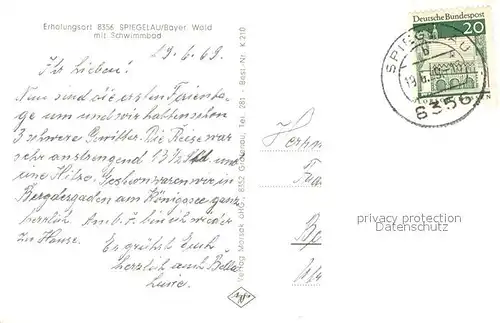 Erholungsort 8356 SPIEGELAU/Bayer. Wald
mit Schwimmbad
29.6.69.
Ihr Lieben!
Nun sind die ersten Ferienta-
ge um und wir hatten schon
3 schwere Gewitter. Die Reise war
sehr anstrengend 13½ Std und
eine Hitze. Gestern waren wir in
Bergdesgaden am Königssee ganz
herrlich. Am 6. 7. bin ich wieder
zu Hause.
Es grüßt Euch
herzlich auch Bella
Lusie.
Verlag Morsak oHG., 8352 Grafenau, Tel. 281 - Best.-Nr. K 210
Deutsche Bundespost
20
SPIEGELAU
8356
Herrn
Fra
privacy protection
Datenschutz